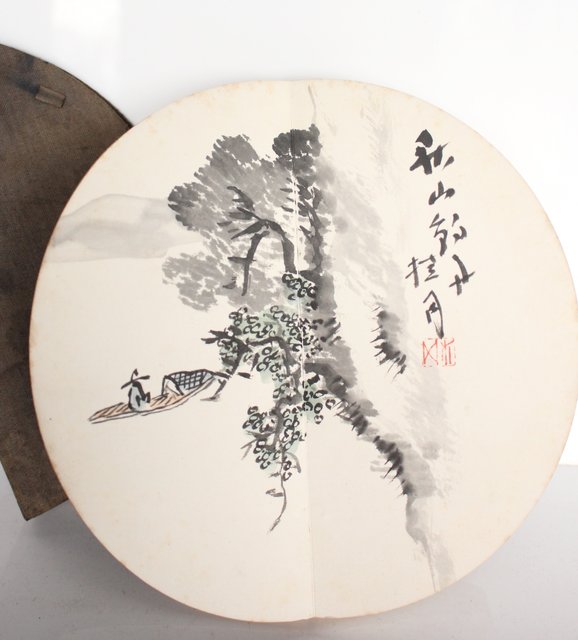 秋山釣舟
桂月